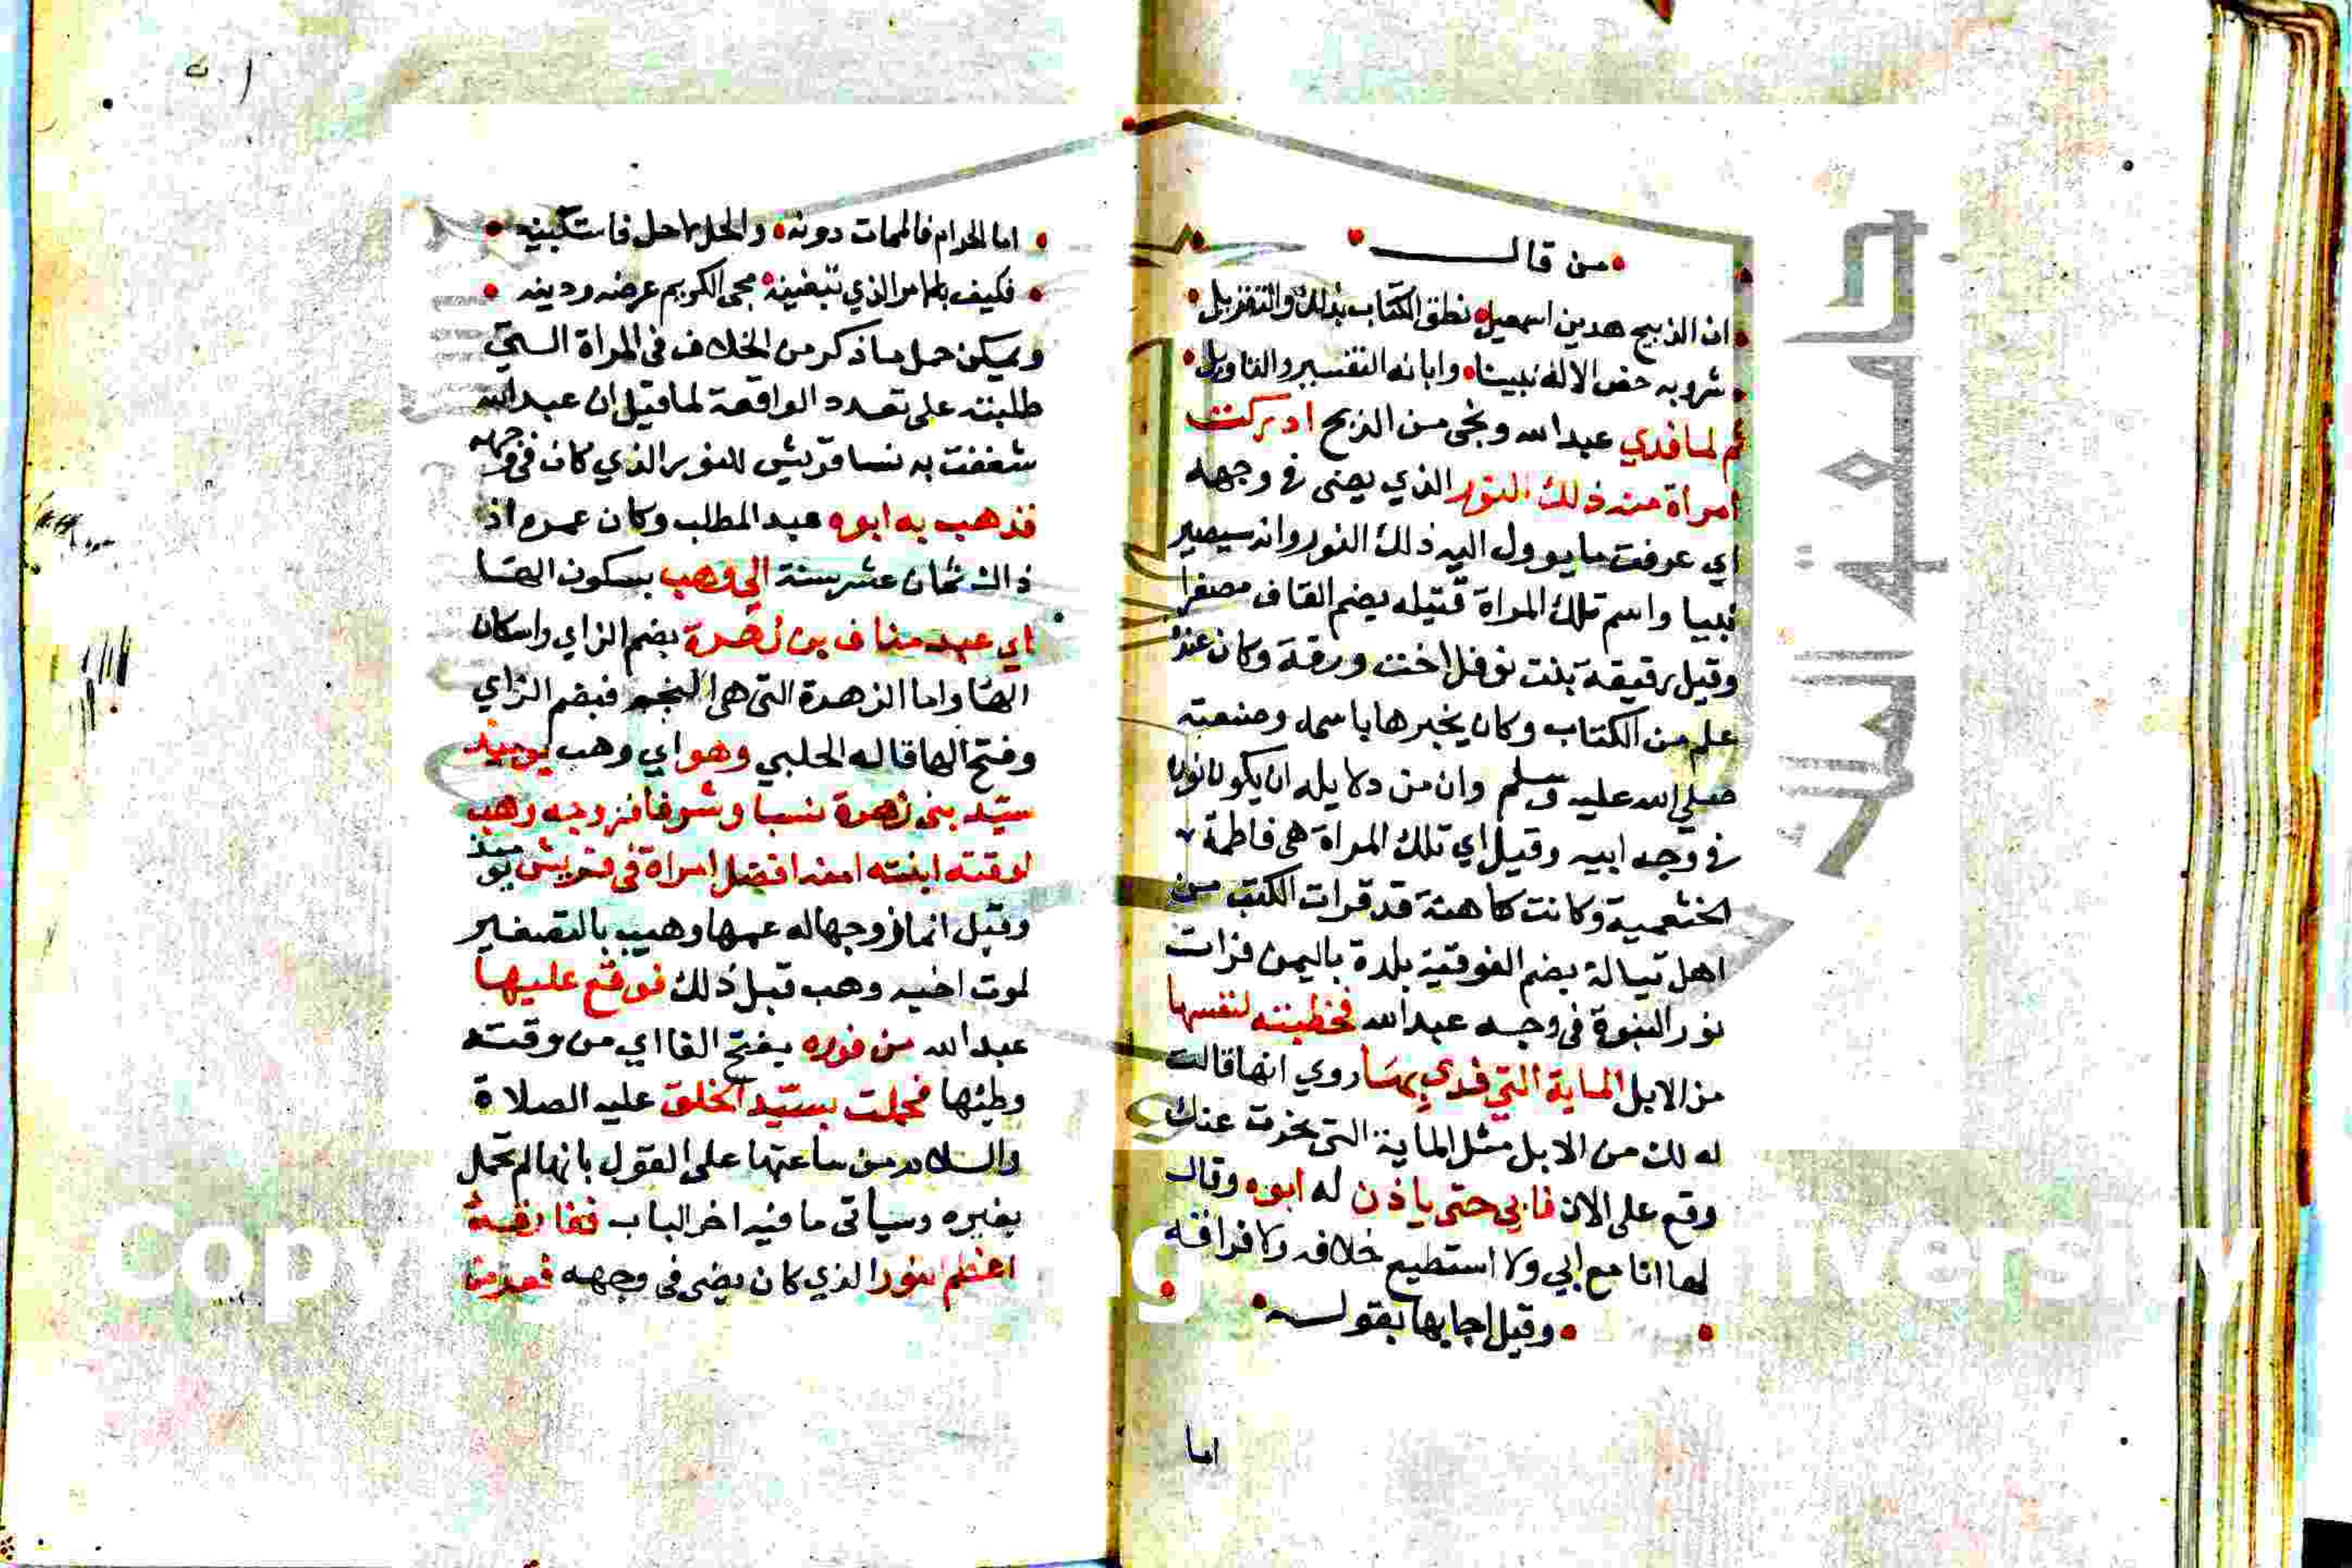 من قال
ان الذبيح هديت اسمعيل نطق الكتاب بذلك والتنزيل
شرو به خص الاله نبينا وابانه التفسير والتاويل
ثم لما فدي عبد الله ونجى من الذبح ادركت
امراة منه ذلك النور الذي يضى في وجهه
اي عرفت ما يوول اليه ذلك النور وانه سيصير
نبيا واسم تلك المراة قتيله بضم القاف مصغرا
وقيل رقيقة بنت نوفل اخت ورقة وكان عنده
علم من الكتاب وكان يخبرها باسمه وصنعته
صلي الله عليه وسلم وان من دلايله ان يكون نورا
في وجه ابيه وقيل اي تلك المراة هى فاطمة
الخثعمية وكانت كاهنة قد قرات الكتب من
اهل تبالة بضم الفوقية بلدة باليمن فرات
نور النبوة في وجه عبد الله فخطبته لنفسها
من الابل الماية التي فدي بها روي انها قالت
له لك من الابل مثل الماية التى نحرت عنك
وقع على الان فابي حتى ياذن له ابوه وقال
لها انا مع ابي ولا استطيع خلافه ولا فراقه
وقيل اجابها بقوله
اما
اما الحرام فالممات دونه والحل لا حل فاستبينه
فكيف بالامر الذي تبغينه يحمى الكريم عرضه ودينه
ويمكن حمل ما ذكر من الخلاف في المراة التي
طلبته على تعدد الواقعة لما قيل ان عبد الله
شغفت به نسا قريش للنور الذي كان في وجهه
فذهب به ابوه عبد المطلب وكان عمره اذ
ذاك ثمان عشر سنة الي وهب بسكون الها
اي عبد مناف بن زهرة بضم الزاي واسكان
الها واما الزهرة التى هى النجم فبضم الزاي
وفتح الها قاله الحلبي وهو اي وهب يوميذ
سيد بنى زهرة نسبا وشرفا فزوجه وهب
لوقته ابنته امنه افضل امراة في قريش يوميذ
وقيل انما زوجها له عمها وهيب بالتصغير
لموت اخيه وهب قبل ذلك فوقع عليها
عبد الله من فوره بفتح الفا اي من وقته
وطئها فحملت بسيد الخلق عليه الصلاة
والسلام من ساعتها على القول بانها لم تحمل
بغيره وسياتى ما فيه اخر الباب ففارقه
اعظم النور الذي كان يضى في وجهه فمرت